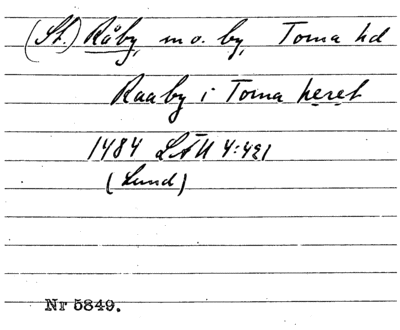 (St.) Råby, m o. by, Torna hd
Raaby i Torna heret
1484 LÄU 4:421
(Lund)
Nr 5849.